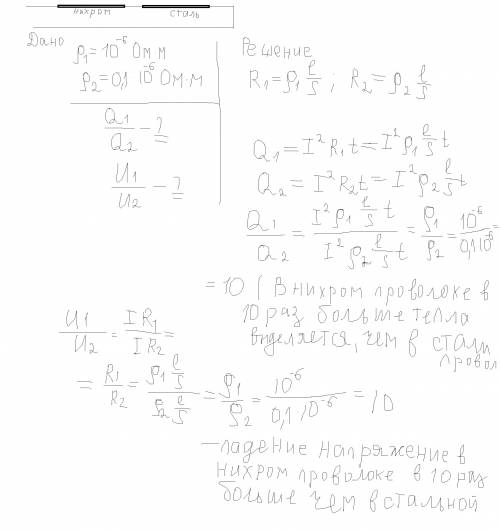 нихром сталь
Дано
ρ₁=10⁻⁶ Ом м
ρ₂=0,1 10⁻⁶ Ом·м
Q₁/Q₂ - ?
U₁/U₂ - ?
Решение
R₁=ρ₁ l/S ; R₂=ρ₂ l/S
Q₁=I²R₁t=I²ρ₁ l/S t
Q₂=I²R₂t=I²ρ₂ l/S t
Q₁/Q₂ = (I²ρ₁ l/S t)/(I²ρ₂ l/S t) = ρ₁/ρ₂ = 10⁻⁶/0,1·10⁻⁶ =
= 10 ( В нихром проволоке в
10 раз больше тепла
выделяется, чем в стали
провол
U₁/U₂ = IR₁/IR₂ =
= R₁/R₂ = (ρ₁ l/S)/(ρ₂ l/S) = ρ₁/ρ₂ = 10⁻⁶/0,1·10⁻⁶ = 10
—падение напряжение в
нихром проволоке в 10 раз
больше чем в стальной